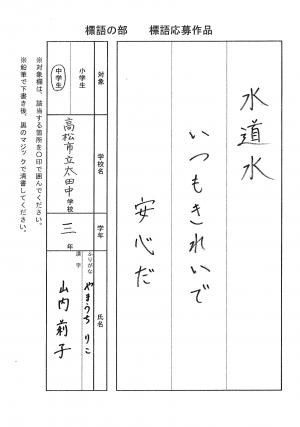 標語の部　標語応募作品
水道水
いつもきれいで
安心だ
対象
小学生
中学生
学校名
高松市立太田中学校
学年
三年
氏名
ふりがな
やまうち りこ
漢字
山内 莉子
※対象欄は、該当する箇所を〇印で囲んでください。
※鉛筆で下書き後、黒のマジックで清書してください。